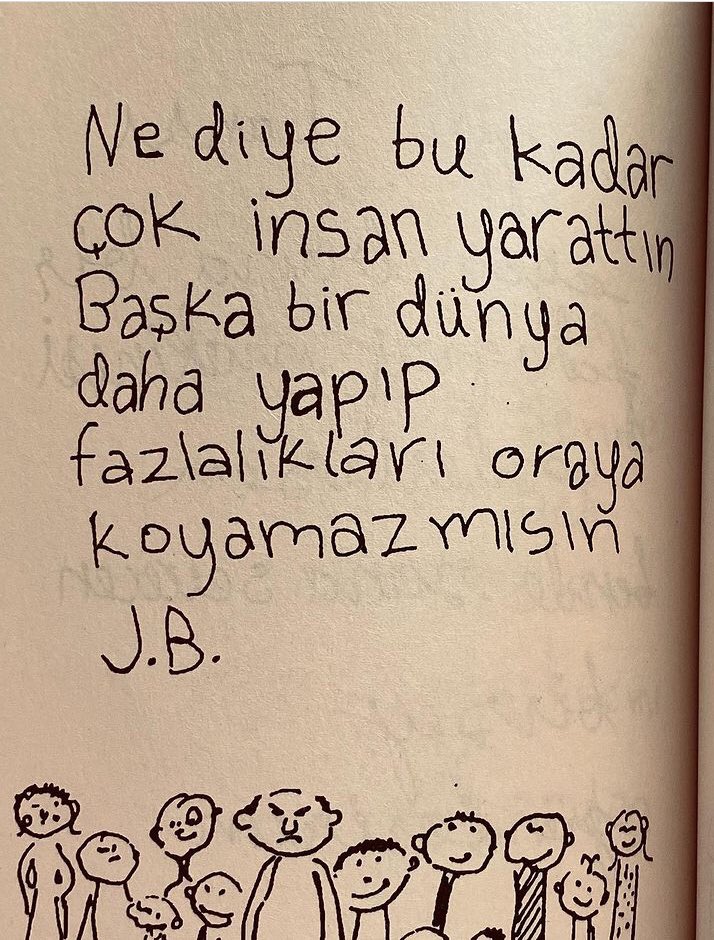 Ne diye bu kadar
çok insan yarattın
Başka bir dünya
daha yapıp
fazlalıkları oraya
koyamaz mısın
J.B.